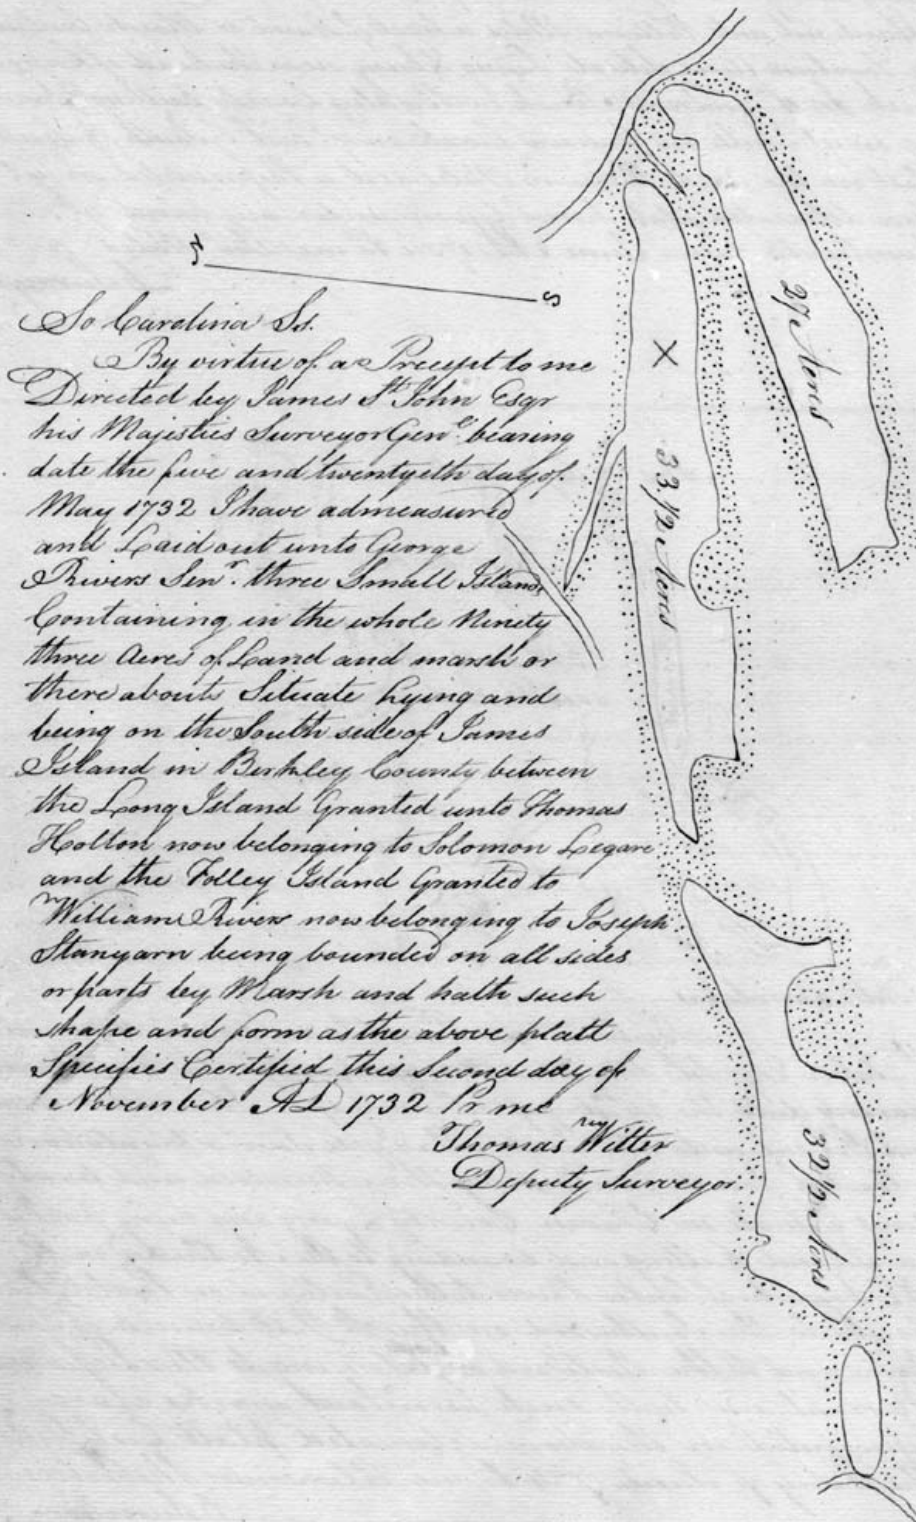 S
So Carolina Ss.
By virtue of a Precept to me
Directed by James St. John Esqr
his Majesties Surveyor Genl. bearing
date the five and twentyeth day of
May 1732 I have admeasured
and Laid out unto George
Rivers Senr. three Small Islands
Containing in the whole Ninety
three Acres of Land and marsh or
there abouts Situate Lying and
being on the South side of James
Island in Berkley County between
the Long Island Granted unto Thomas
Holton now belonging to Solomon Legare
and the Folley Island Granted to
William Rivers now belonging to Joseph
Stanyarn being bounded on all sides
or parts by Marsh and hath such
shape and form as the above platt
Specifies Certified this Second day of
November AD 1732 Pr me
Thomas Witter
Deputy Surveyor.
27 Acres
X
33 1/2 Acres
32 1/2 Acres